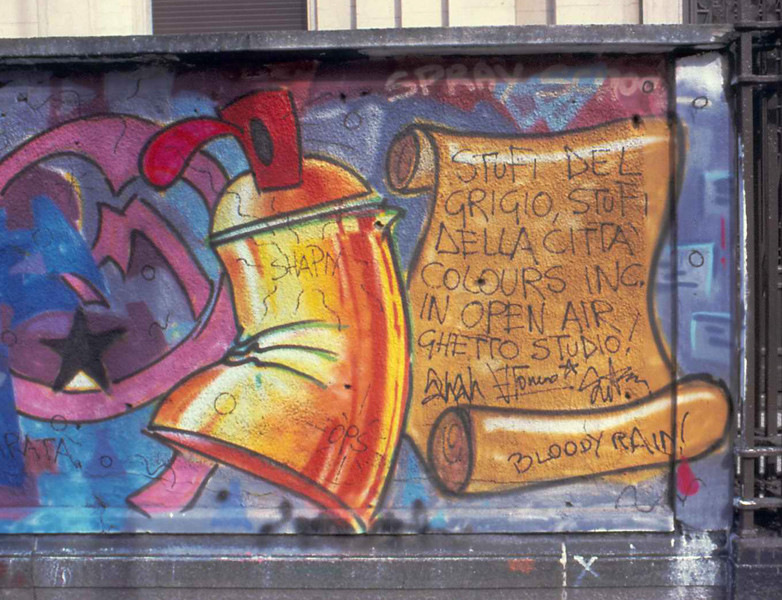 SPRAY
STUFI DEL
GRIGIO, STUFI
DELLA CITTÀ
COLOURS INC.
IN OPEN AIR,
GHETTO STUDIO!
BLOODY RAIN!
SHAPIY
OPS
RATA